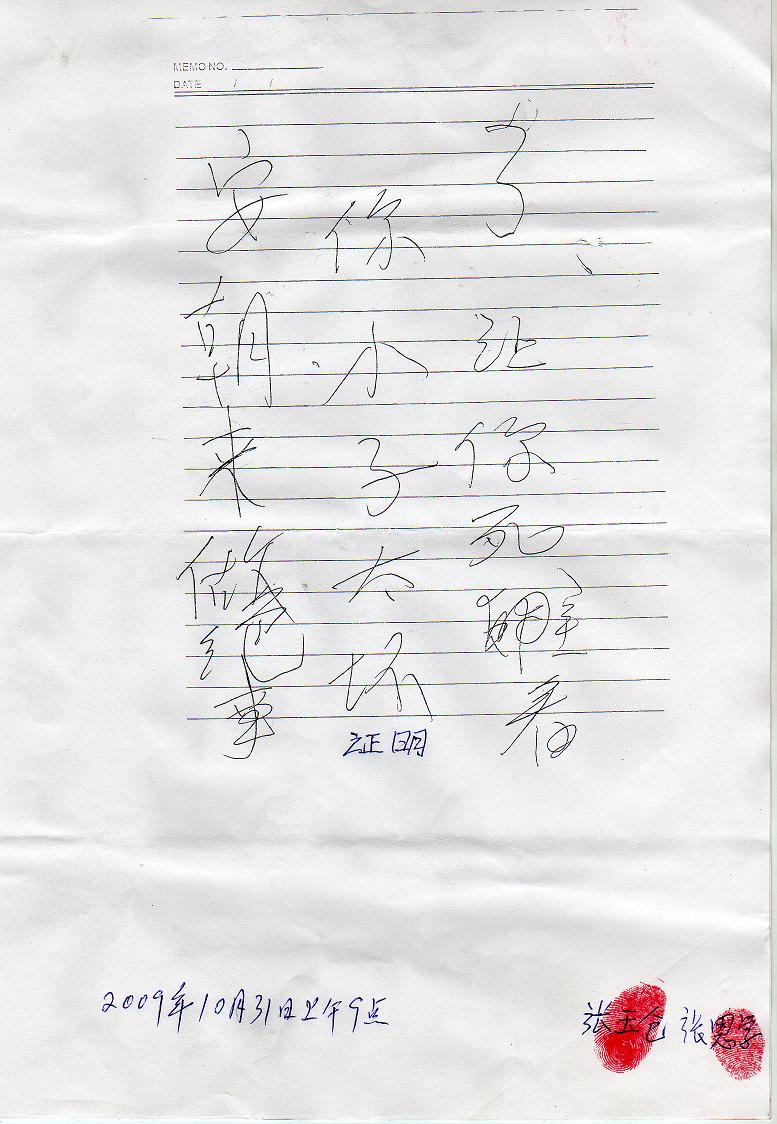 MEMO NO.
DATE / /
安朝来做绝事
你小子太坏
了、让你死看
证明
2009年10月31日上午9点
张玉仓 张